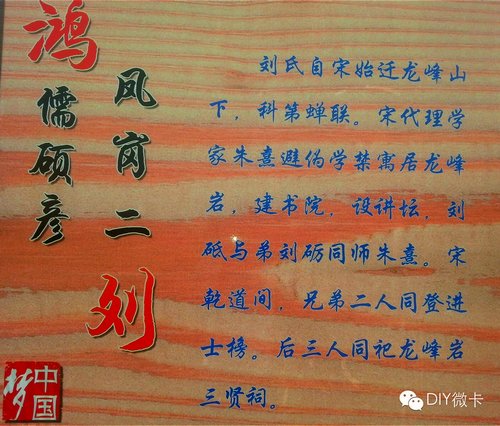 鸿儒硕彦
凤岗二刘
刘氏自宋始迁龙峰山
下，科第蝉联。宋代理学
家朱熹避伪学禁寓居龙峰
岩，建书院，设讲坛，刘
砥与弟刘砺同师朱熹。宋
乾道间，兄弟二人同登进
士榜。后三人同祀龙峰岩
三贤祠。
中国梦
DIY微卡